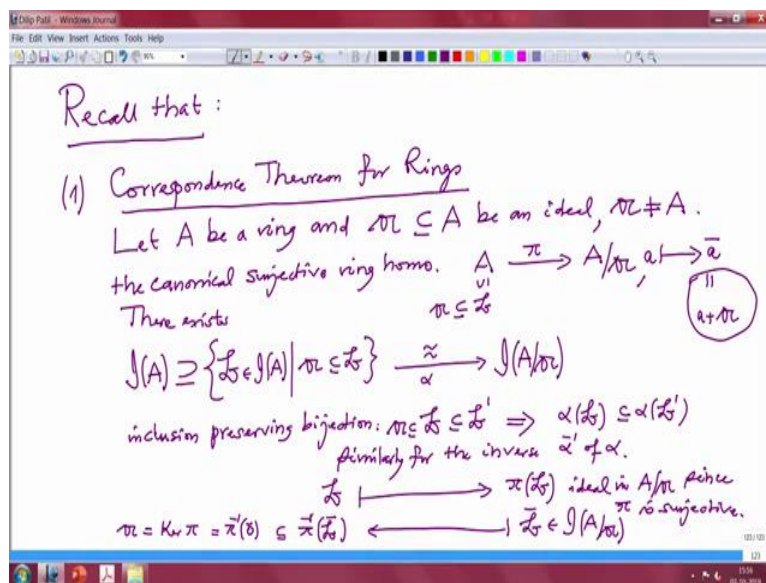 Dilip Patil - Windows Journal
File Edit View Insert Actions Tools Help
Recall that :
(1) Correspondence Theorem for Rings
Let A be a ring and 𝔞 ⊆ A be an ideal, 𝔞 ≠ A.
the canonical surjective ring homo. A —π→ A/𝔞, a ↦ ā
∪| ||
There exists 𝔞 ⊆ 𝔟 a+𝔞
𝓘(A) ⊇ {𝔟 ∈ 𝓘(A) | 𝔞 ⊆ 𝔟} —≈→ 𝓘(A/𝔞)
α
inclusion preserving bijection: 𝔞 ⊆ 𝔟 ⊆ 𝔟' ⇒ α(𝔟) ⊆ α(𝔟')
Similarly for the inverse α⁻¹ of α.
𝔟 ⟼ π(𝔟) ideal in A/𝔞 since
π is surjective.
𝔞 = Ker π = π⁻¹(0) ⊆ π⁻¹(𝔟̄) ⟵ 𝔟̄ ∈ 𝓘(A/𝔞)
123
15:56